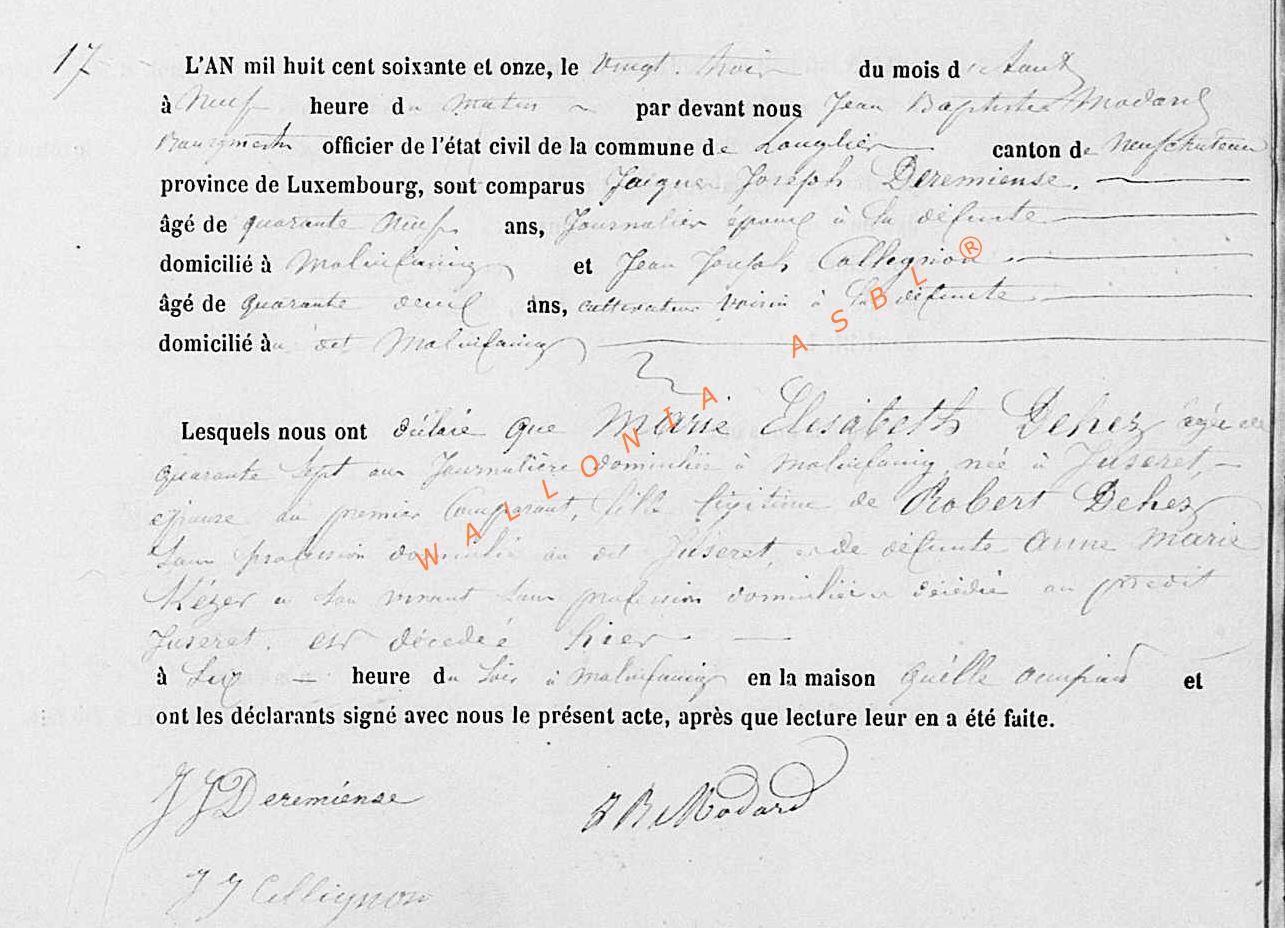 17
L'AN mil huit cent soixante et onze, le vingt trois du mois d'Août
à Neuf heure du matin par devant nous Jean Baptiste Modard
Bourgmestre officier de l'état civil de la commune de Longlier canton de Neufchateau
province de Luxembourg, sont comparus Jacques Joseph Deremiense.
âgé de quarante neuf ans, Journalier époux à la défunte
domicilié à Molinfaing et Jean Joseph Collignon
âgé de quarante deux ans, cultivateur voisin à la défunte
domicilié au dit Molinfaing
Lesquels nous ont déclaré que Marie Elisabeth Dehez agée de
quarante sept ans Journalière domiciliée à Molinfaing, née à Juseret,
épouse au premier Comparant, fille légitime de Robert Dehez
sans profession domicilié au dit Juseret, et de défunte Anne Marie
Kézer en son vivant sans profession domiciliée et décédée au prédit
Juseret. est décédée hier
à Six heure du soir à Molinfaing en la maison qu'elle occupait et
ont les déclarants signé avec nous le présent acte, après que lecture leur en a été faite.
J J Deremiense J B Modard
J J Collignon
WALLONIA ASBL ®